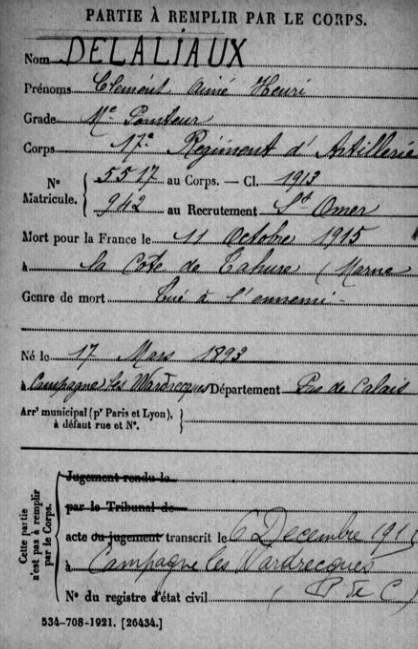 PARTIE À REMPLIR PAR LE CORPS.
Nom DELALIAUX
Prénoms Clément Aimé Henri
Grade Mᵉ Pointeur
Corps 17ᵉ Régiment d'Artillerie
Nº Matricule. { 5517 au Corps. — Cl. 1913
942 au Recrutement Sᵗ Omer
Mort pour la France le 11 Octobre 1915
à la Cote de Tahure (Marne
Genre de mort Tué à l'ennemi
Né le 17 Mars 1893
à Campagne les Wardrecques Département Pas de Calais
Arrᵗ municipal (pʳ Paris et Lyon), à défaut rue et Nº. }
Cette partie n'est pas à remplir par le Corps.
Jugement rendu le
par le Tribunal de
acte ou jugement transcrit le 6 Decembre 191
à Campagne les Wardrecques
Nº du registre d'état civil (P de C)
534-708-1921. [26434.]